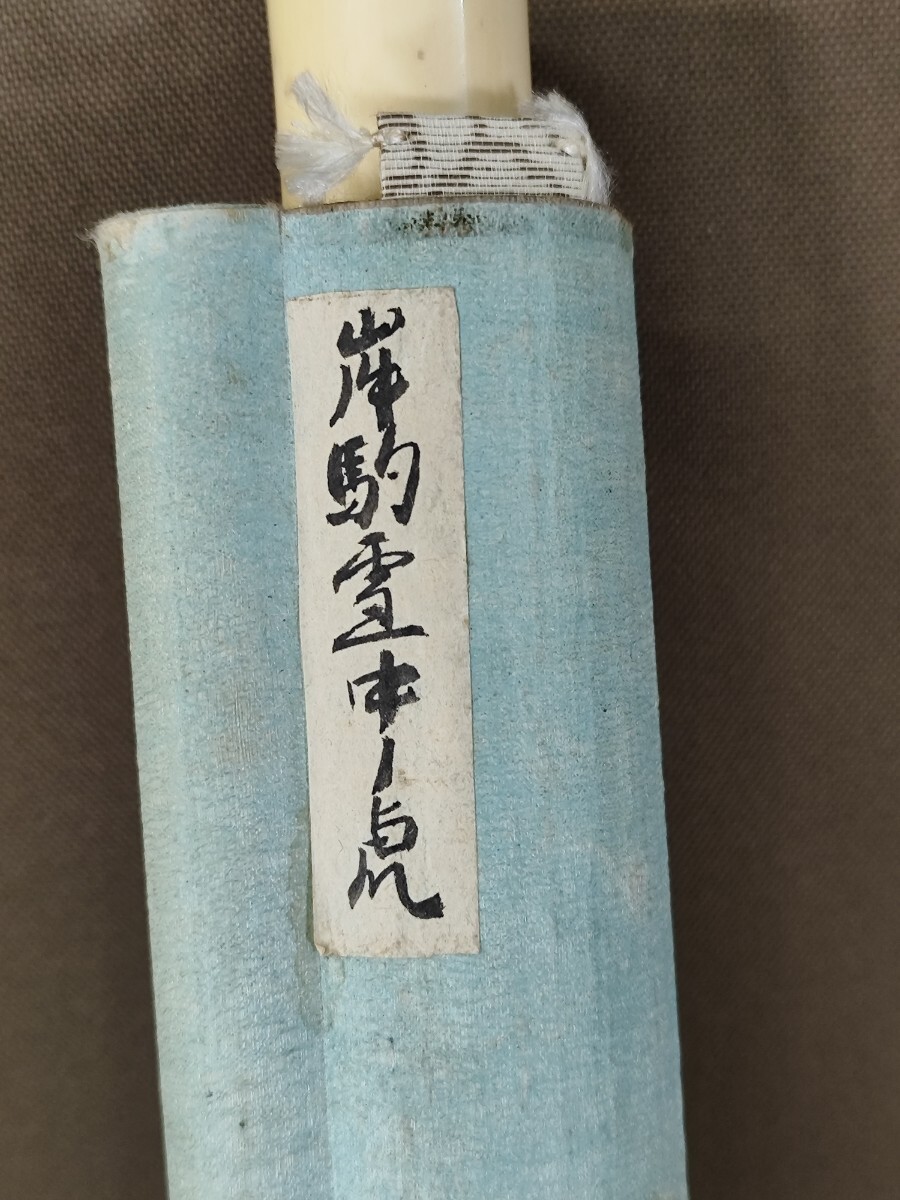 岸駒雪中ノ虎